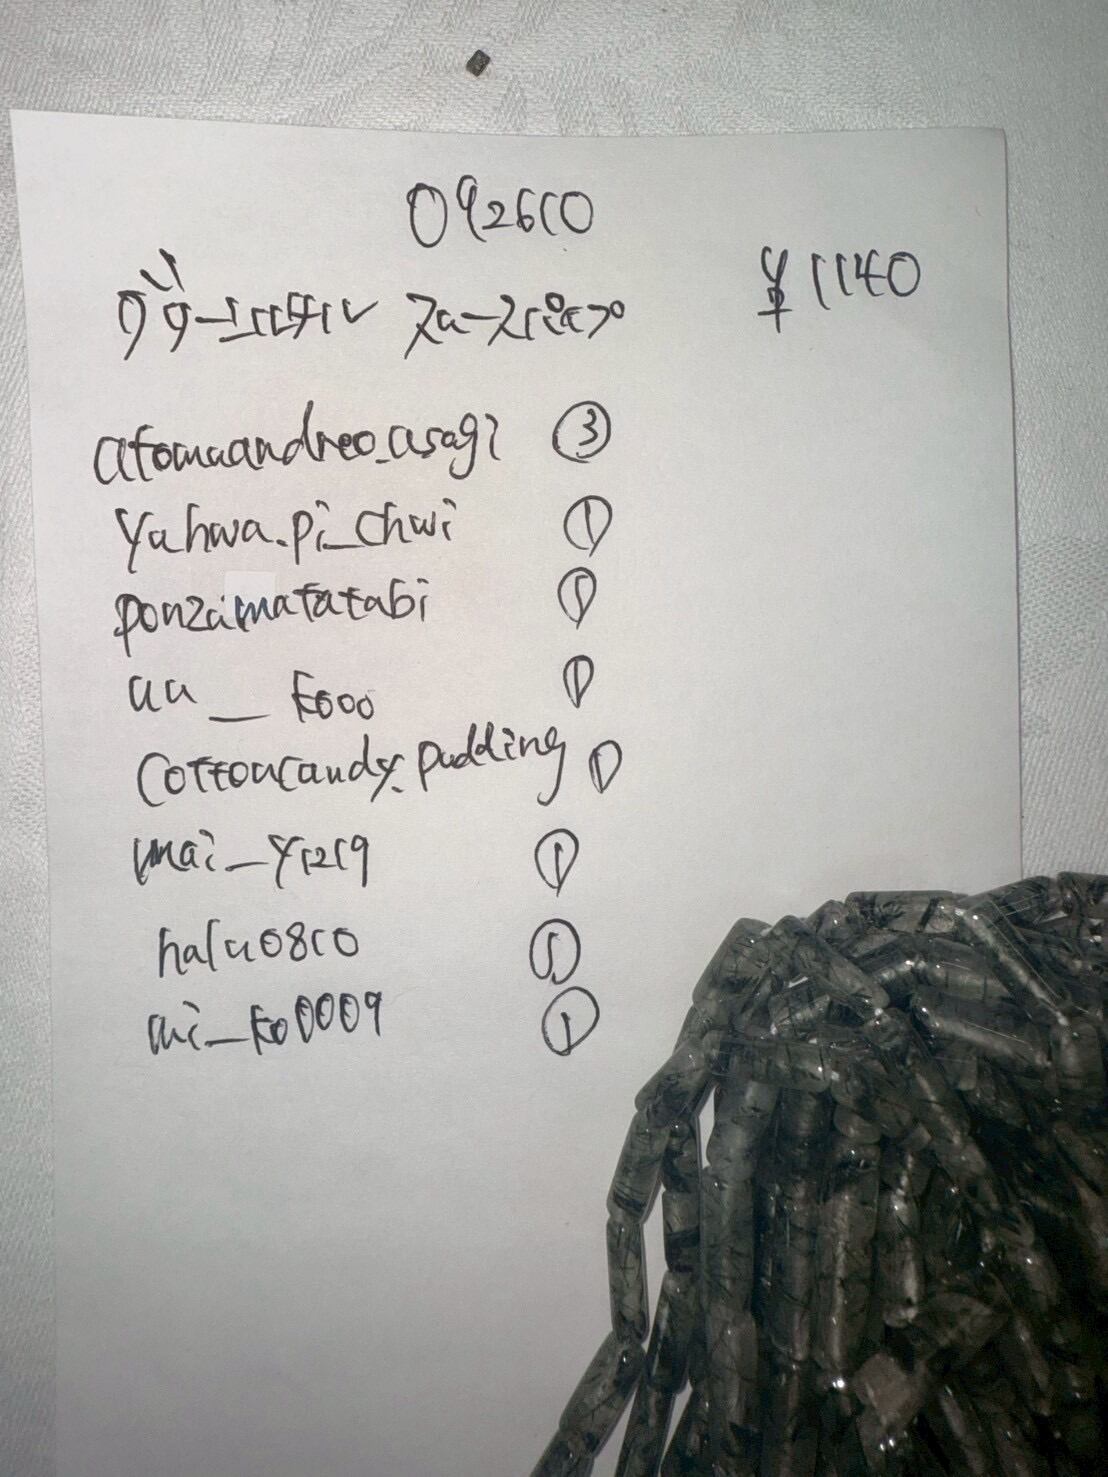 092610
¥1140
atomaandneo_asagi ③
yahwa.pi_chwi ①
ponzumatatabi ①
aa__kooo ①
cottoncandy._pudding ①
mai_y1219 ①
halu0810 ①
mi_ko0009 ①